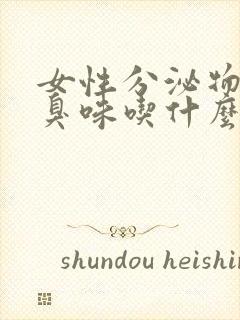 女性分泌物
臭味喫什麼
shundou heishin